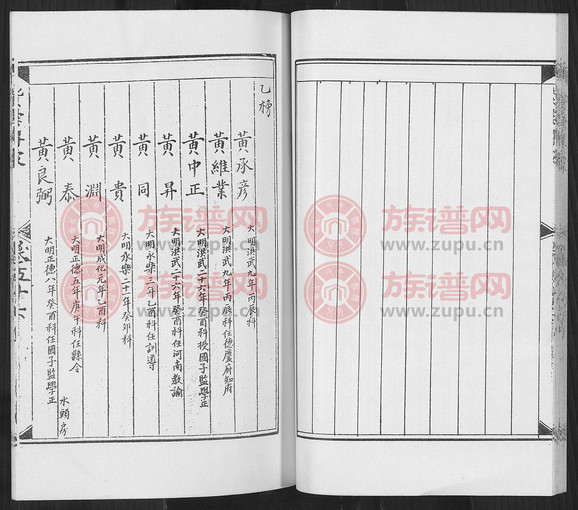 乙榜
黃承彥 大明洪武九年丙辰科
黃維業 大明洪武九年丙辰科任德慶府知府
黃中正 大明洪武二十六年癸酉科授國子監學正
黃昇 大明洪武二十六年癸酉科任河南教諭
黃同 大明永樂三年乙酉科任訓導
黃貴 大明永樂二十一年癸卯科
黃淵 大明成化元年乙酉科
黃泰 大明正德五年庚午科任縣令
黃良弼 大明正德八年癸酉科任國子監學正
水頭房
族谱网
www.zupu.cn
族谱网
www.zupu.cn
族谱网
www.zupu.cn
族谱网
www.zupu.cn